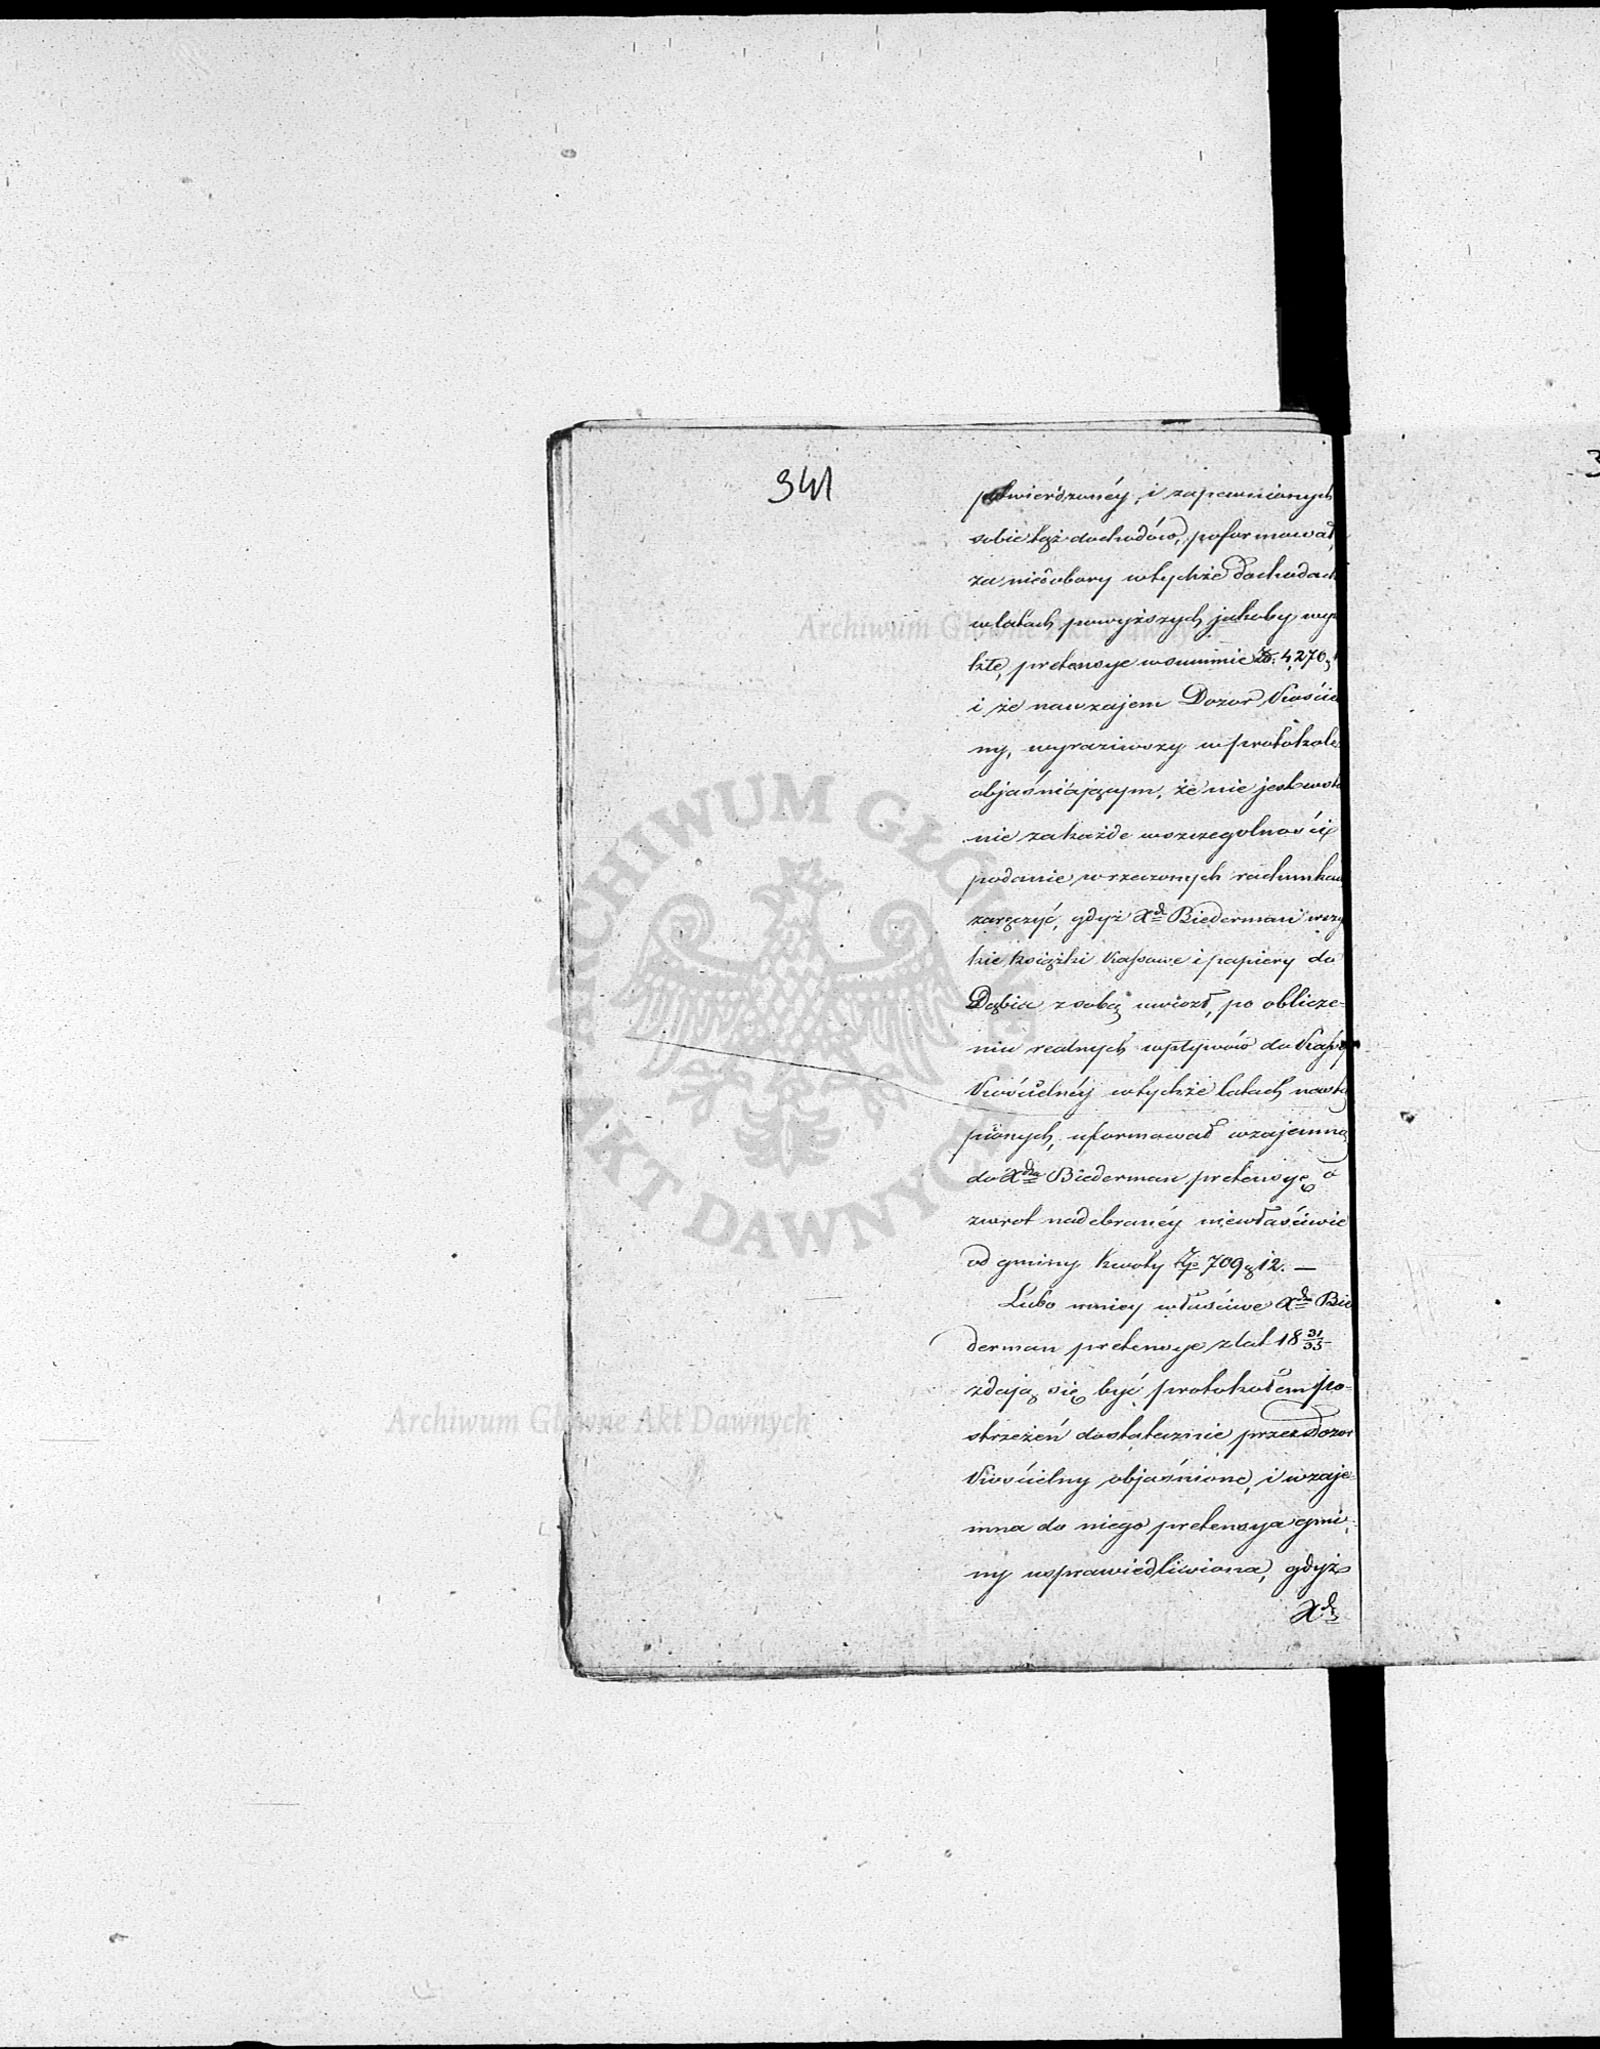 341
potwierdzonéy, i zapewnionych
sobie tąż dochodów, poformował,
za niedobory wtychże dochodach
w latach powyższych jakoby wyni
kłe, pretensye wsummie Zł. 4,270
i że nawzajem Dozor Kościel
ny, wyraziwszy w protokole
objaśniającym, że nie jest wsta
nie zakażde wszczegolności
podanie w rzeczonych rachunkach
zaręczyć, gdyż Xdz Biederman wszy
kie książki Kassowe i papiery do
Dąbia z sobą uwiozł, po oblicze-
niu realnych wpływow do Kassy
Kościelnéy wtychże latach nastą
pionych, uformował wzajemną
do Xdza Biederman pretensyę o
zwrot nadebranéy niewłaściwie
od gminy kwoty Zł 709 g 12. —
Lubo mniey właściwe Xdza Bie
derman pretensye zlat 18 31/35
zdają się być protokołem po-
strzeżeń dostatecznie przez Dozor
Kościelny objaśnione, i wzaje-
mna do niego pretensya gmi-
ny usprawiedliwiona, gdyż
Xdz
3
Archiwum Główne Akt Dawnych
Archiwum Główne Akt Dawnych
ARCHIWUM GŁÓWNE AKT DAWNYCH